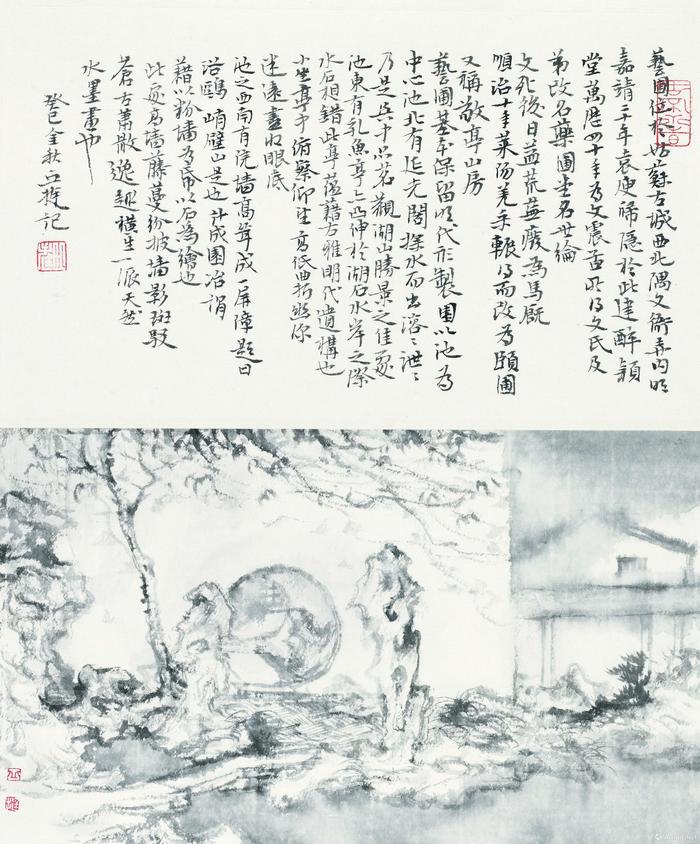 藝圃位於姑蘇古城西北隅文衙弄內明
嘉靖三十年袁庚歸隱於此建醉穎
堂萬歷四十年為文震孟所得文氏及
弟改名藥圃堂名世綸
文死後日益荒蕪廢為馬厩
順治十年萊陽姜采輾得而改為頤圃
又稱敬亭山房
藝圃基本保留明代形製園以池為
中心池北有延光閣探水而出溶溶洩洩
乃是與中品茗觀湖山勝景之佳處
池東有乳魚亭亭亦凸伸於湖石水岸之際
水石相錯此亭蘊藉古雅明代遺構也
小坐亭中俯察仰望高低曲折照你
迷遠盡收眼底
池之西南有院墻高聳成一屏障題曰
浴鷗峭壁山是也計成園冶謂
藉以粉墻為帋以石為繪也
此處為墻藤蔓紛披墻影斑駁
蒼古蕭散逸趣橫生一派天然
水墨畫也
癸巳金秋 記